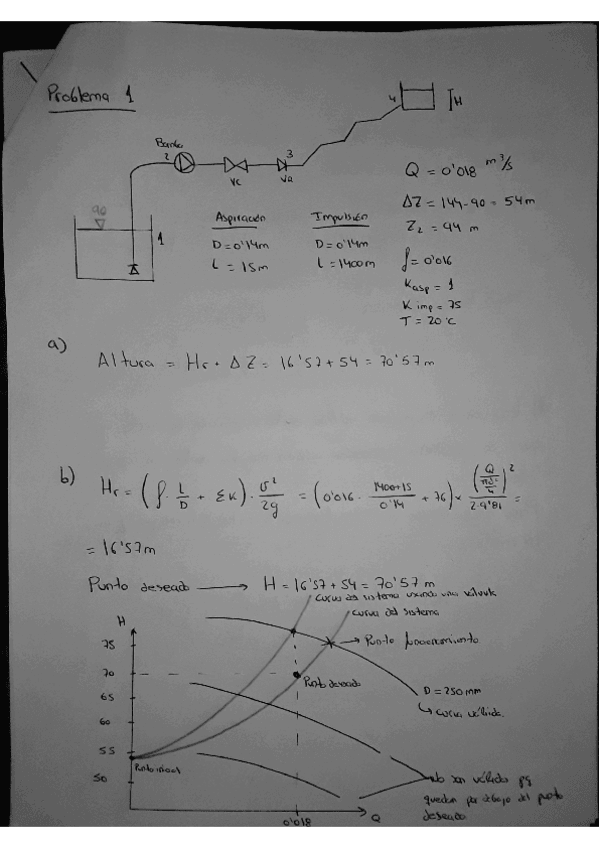 Problema 1
4
H
Bomba
2
3
VC
VR
90
1
Aspiración
D = 0'14m
L = 15m
Impulsión
D = 0'14m
L = 1400m
Q = 0'018 m³/s
ΔZ = 144-90 = 54m
f = 0'016
Kasp = 1
K imp = 75
T = 20°C
a)
Altura = Hr + ΔZ = 16'57 + 54 = 70'57 m
b)
Hr = (f · L/D + ΣK) · v²/2g = (0'016 · 1400+15/0'14 + 76) × (Q/(πD²/4))²/2·9'81 =
= 16'57m
Punto deseado → H = 16'57 + 54 = 70'57 m
curva del sistema usando una válvula
curva del sistema
H
75
Punto funcionamiento
70
Punto deseado
D = 250 mm
65
curva válida
60
55
Punto inicial
50
no son válidas pq
quedan por debajo del punto
deseado
0'018
Q